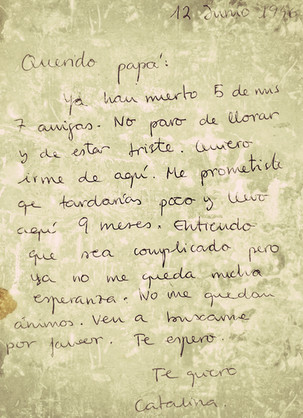 12 Junio 1996
Querido papá:
Ya han muerto 5 de mis
7 amigas. No paro de llorar
y de estar triste. Quiero
irme de aquí. Me prometiste
qe tardarías poco y llevo
aquí 9 meses. Entiendo
que sea complicado pero
ya no me queda mucha
esperanza. No me quedan
ánimos. Ven a buscarme
por favor. Te espero.
Te quiero
Catalina.